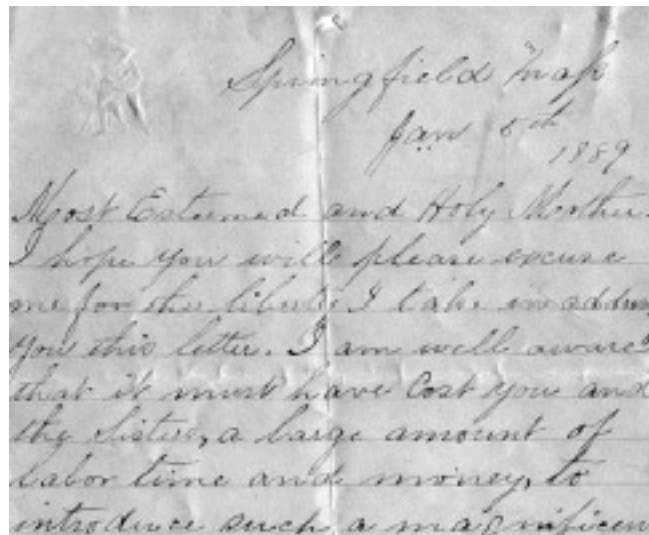 Springfield Mass
Jan 5th
1889
Most Esteemed and Holy Mother.
I hope you will please excuse
me for the liberty I take in
you this letter. I am well aware
that it must have Cost you and
the Sisters, a large amount of
labor time and money, to
introduce such a magnificen